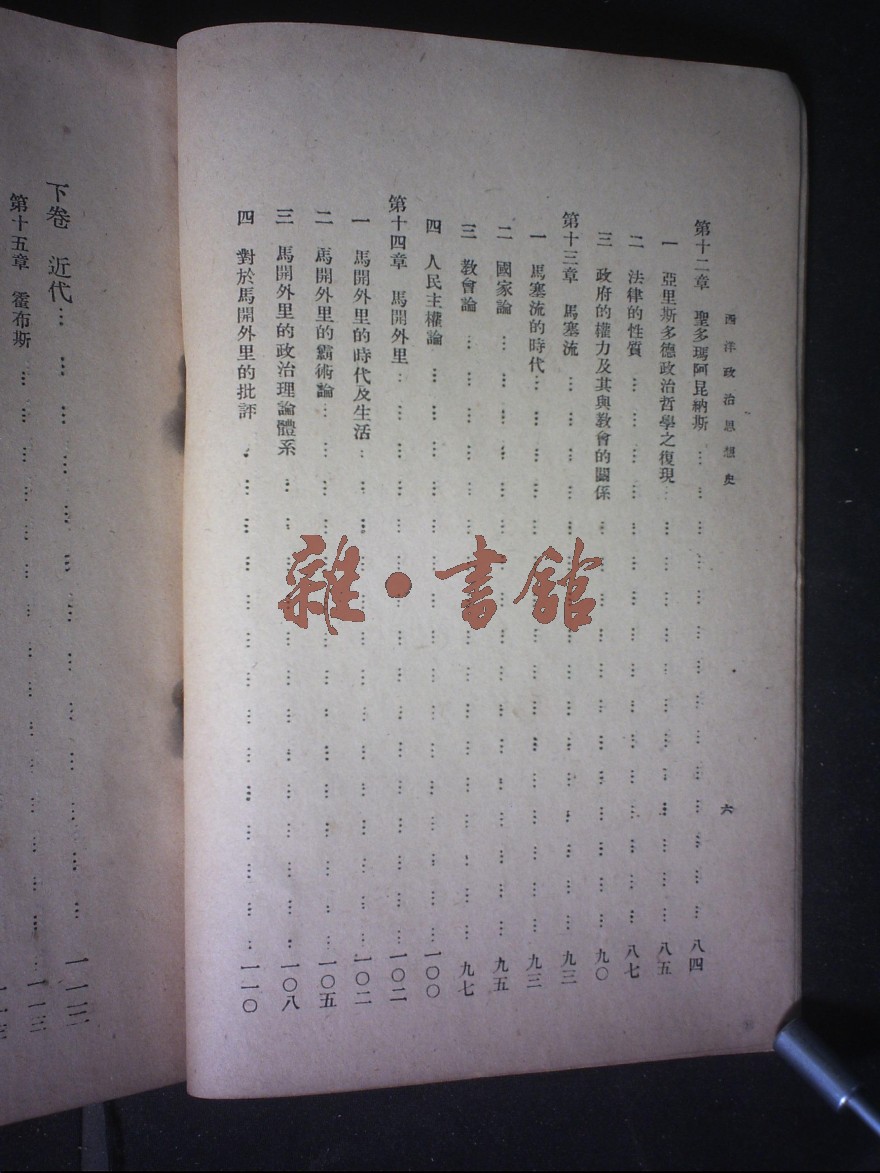 西洋政治思想史
六
第十二章 聖多瑪阿昆納斯 八四
一 亞里斯多德政治哲學之復現 八五
二 法律的性質 八七
三 政府的權力及其與教會的關係 九〇
第十三章 馬塞流 九三
一 馬塞流的時代 九三
二 國家論 九五
三 教會論 九七
四 人民主權論 一〇〇
第十四章 馬開外里 一〇二
一 馬開外里的時代及生活 一〇二
二 馬開外里的霸術論 一〇五
三 馬開外里的政治理論體系 一〇八
四 對於馬開外里的批評 一一〇
下卷 近代
第十五章 霍布斯 一一三
雜·書館